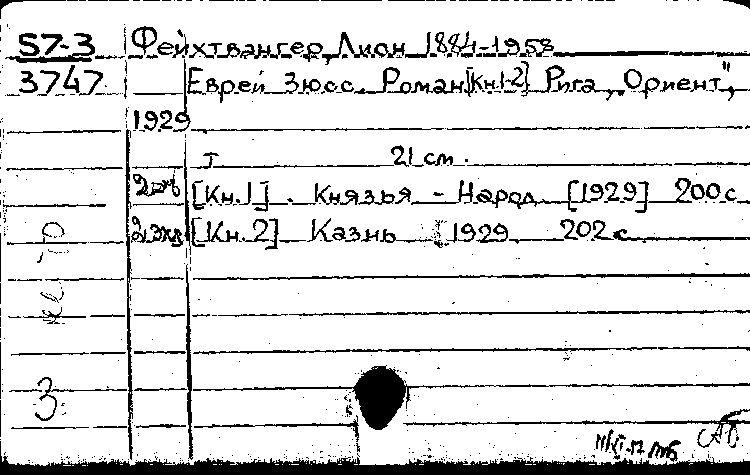 57-3 Фейхтвангер, Лион 1884-1958
3747 Еврей Зюсс. Роман [Кн.1-2] Рига, „Ориент",
1929
т 21 см.
2 экз [Кн.1]. Князья - Народ. [1929] 200 с
2 экз [Кн.2] Казнь [1929 202 с.
3